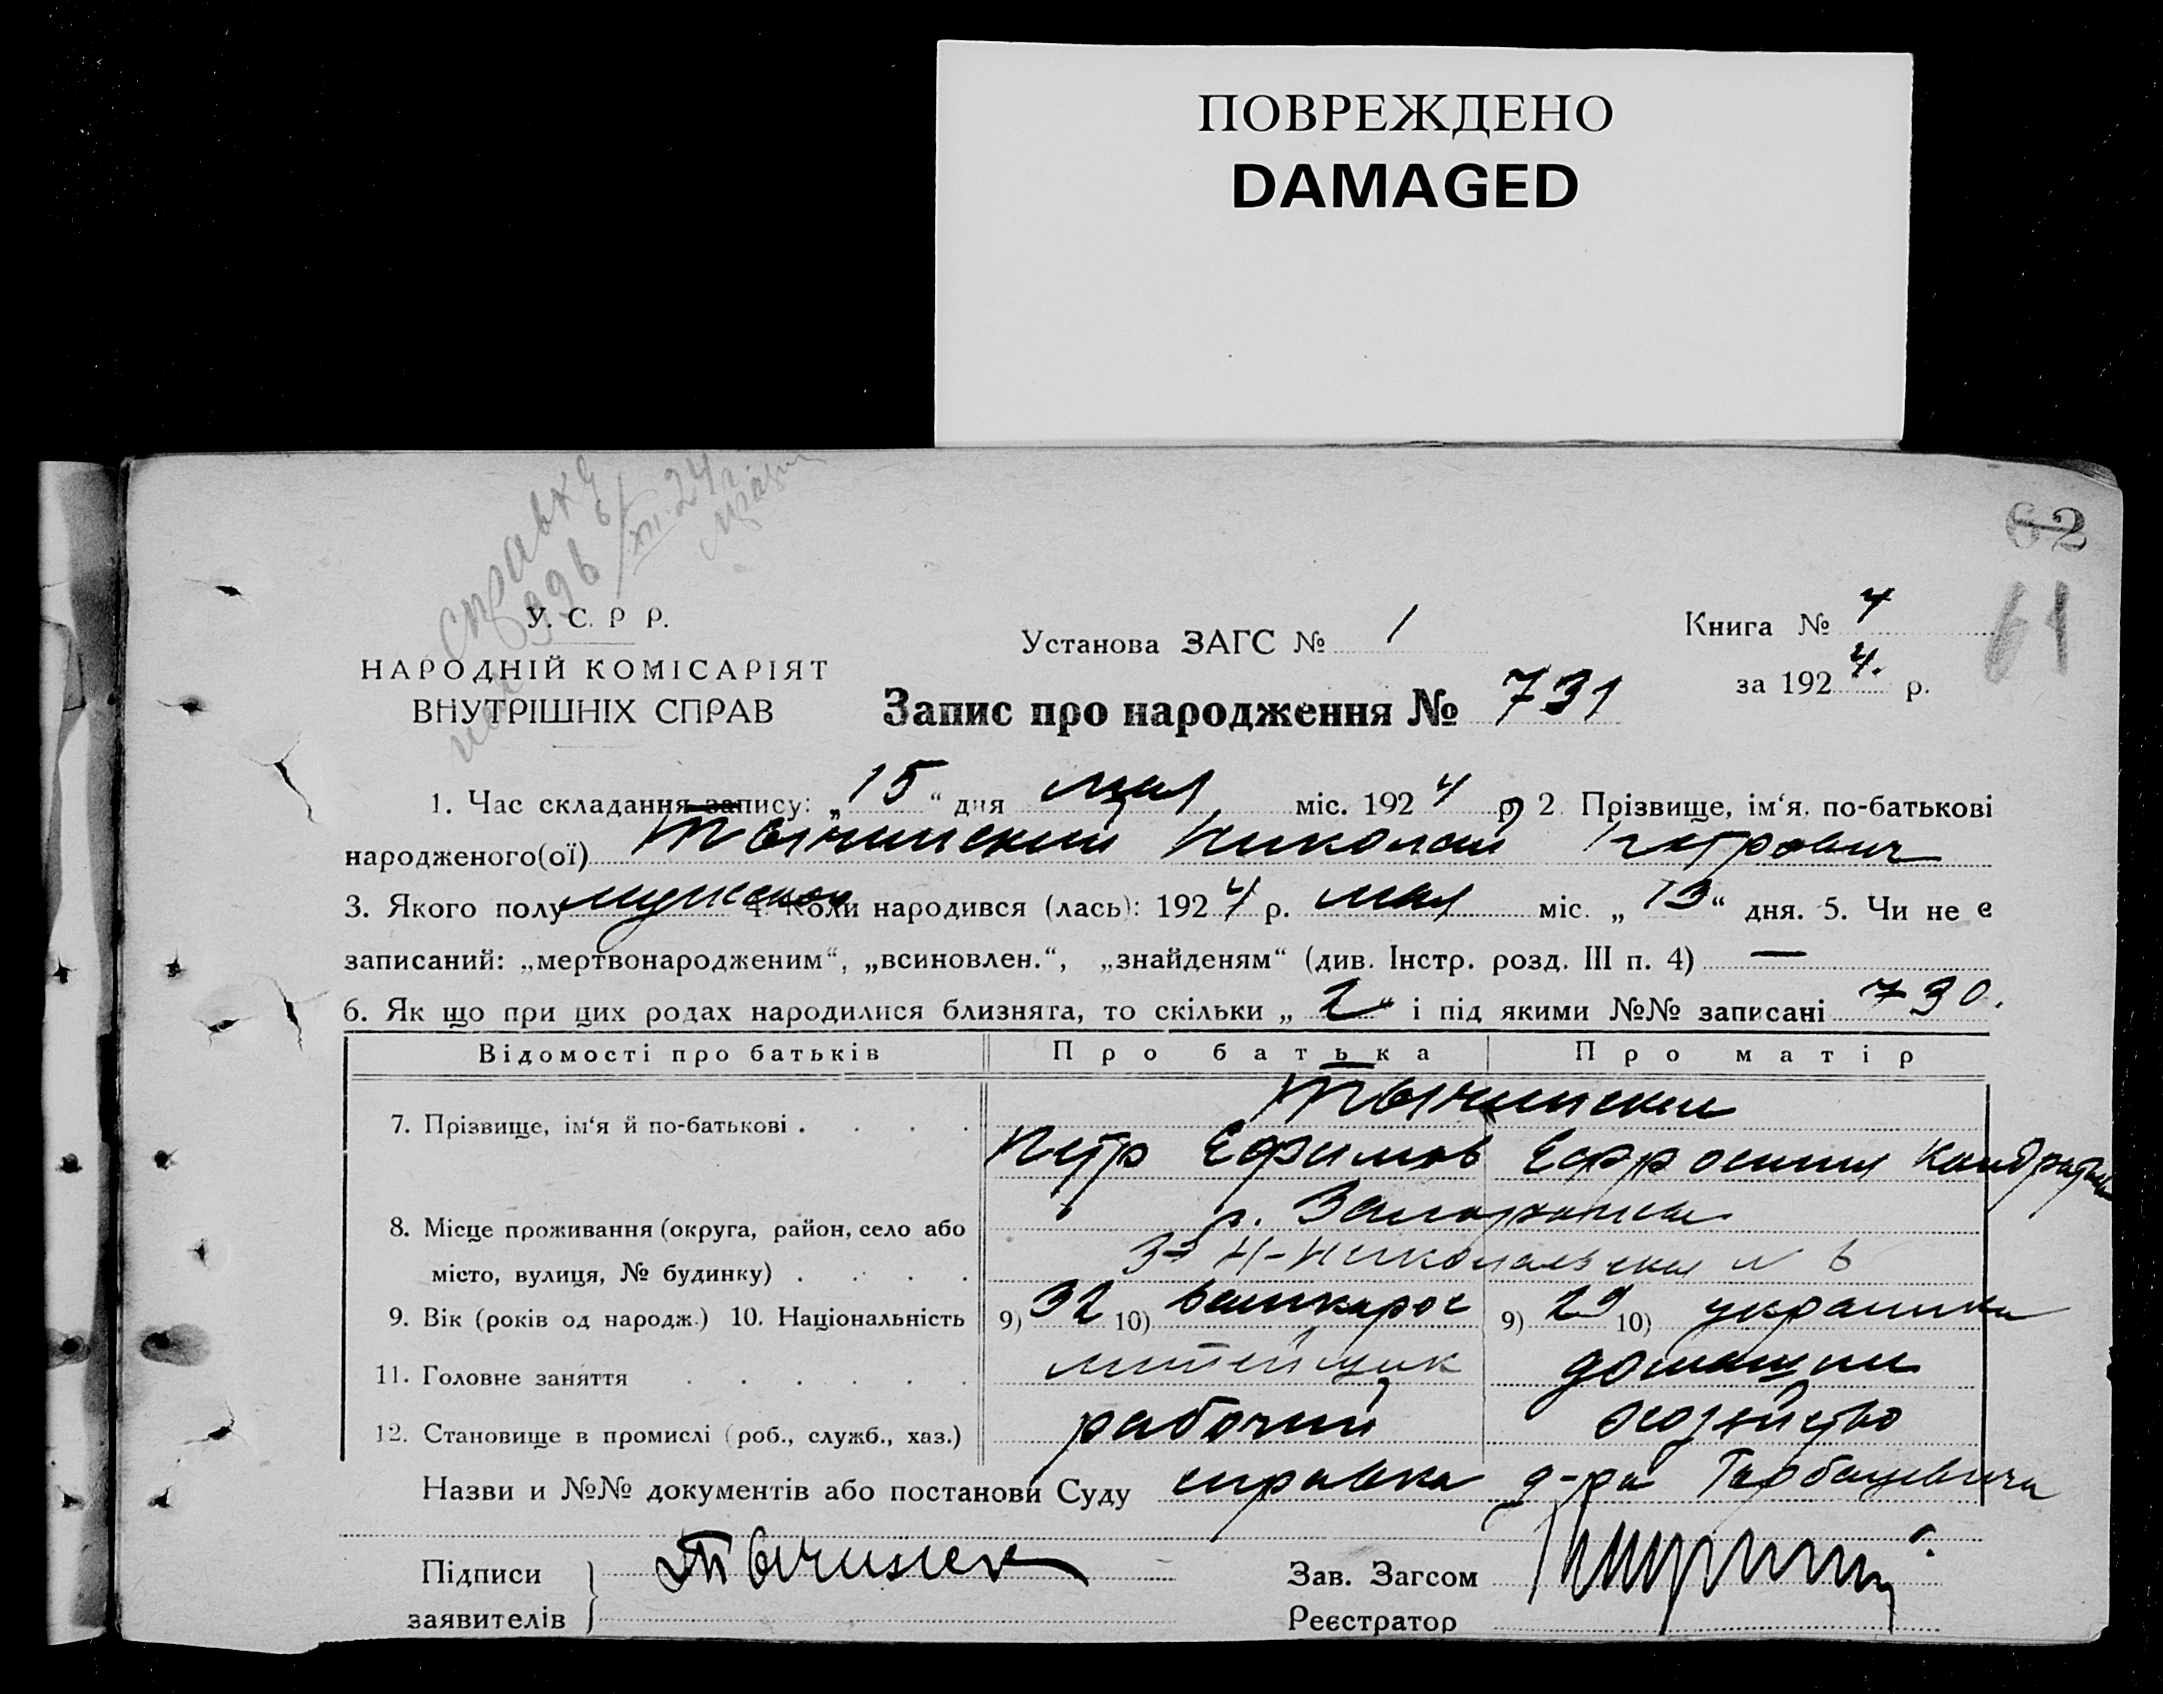 ПОВРЕЖДЕНО
DAMAGED
справка
62
61
У. С. Р Р.
НАРОДНІЙ КОМІСАРІЯТ
ВНУТРІШНІХ СПРАВ
Установа ЗАГС № 1
Книга № 4
за 192 4. р.
Запис про народження № 731
1. Час складання запису: „ 15 “ дня мая міс. 192 4 р. 2. Прізвище, ім‘я, по-батькові
народженого(ої) Тычинский Николай Петрович
3. Якого полу мужского 4. Коли народився (лась): 192 4 р. мая міс. „ 13 “ дня. 5. Чи не є
записаний: „мертвонародженим“, „всиновлен.“, „знайденям“ (див. Інстр. розд. III п. 4) —
6. Як що при цих родах народилися близнята, то скільки „ 2 “ і під якими №№ записані 730.
Відомості про батьків Про батька Про матір
7. Прізвище, ім‘я й по-батькові . . . . Тычински
Петр Ефимов Ефросиния
8. Місце проживання (округа, район, село або
місто, вулиця, № будинку) . . . . № 6
9. Вік (років од народж.) 10. Національність 9) 32 10) 9) 29 10) украинка
11. Головне заняття . . . . . . литейщик домашнее
12. Становище в промислі (роб., служб., хаз.) рабочий хозяйство
Назви и №№ документів або постанови Суду справка д-ра
Підписи
заявителів } Тычинск
Зав. Загсом
Реєстратор